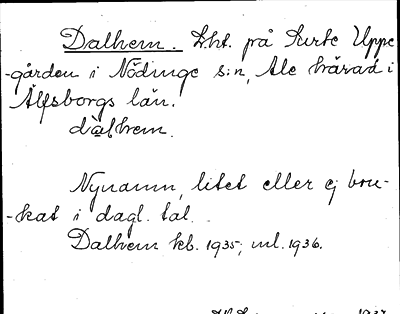 Dalhem. Lht. på Surte Uppe
-gården i Nödinge s:n, Ale härad i
Älfsborgs län.
dàlhem.
Nynamn, litet eller ej bru-
-kat i dagl. tal.
Dalhem kb. 1935; ml. 1936.